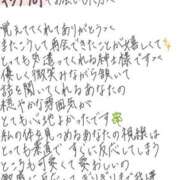 覚えてくれてありがとうっ
またこうして再会できたことが嬉しくて
とっても素適な紳士様ですっ
優しく微笑みながら頷いて
話を聞いてくれるあなたの
穏やかな雰囲気が
とても心地よかったです
私の体を見つめるあなたの視線は
とっても素直で すぐに反応してしまう
ところも可愛くて愛おしいの